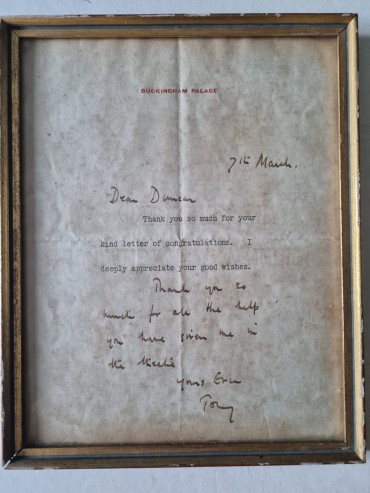 BUCKINGHAM PALACE
7th March.
Dear Duncan
Thank you so much for your
kind letter of congratulations. I
deeply appreciate your good wishes.
Thank you so
much for all the help
you have given me in
the
Yours Ever
Tony